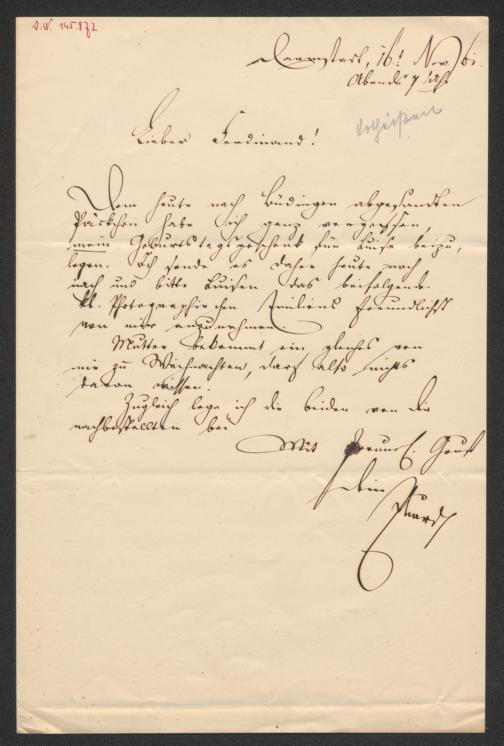 S.W. 145.872
Darmstadt, 16t Nov. 61.
Abends 7 Uhr
Lieber Ferdinand!
Dem heute nach Büdingen abgesandten
Päckchen habe ich ganz vergessen,
mein Geburtstagsgeschenk für Luise beizu-
legen. Ich sende es daher heute noch
nach und bitte Luisen das beifolgende
kl. Photographiechen Emiliens freundlichst
von mir anzunehmen.
Mutter bekommt ein gleiches von
mir zu Weihnachten, darf also nichts
davon wissen.
Zugleich lege ich die beiden von Dir
nachbestellten bei
Mit Gruß
Dein